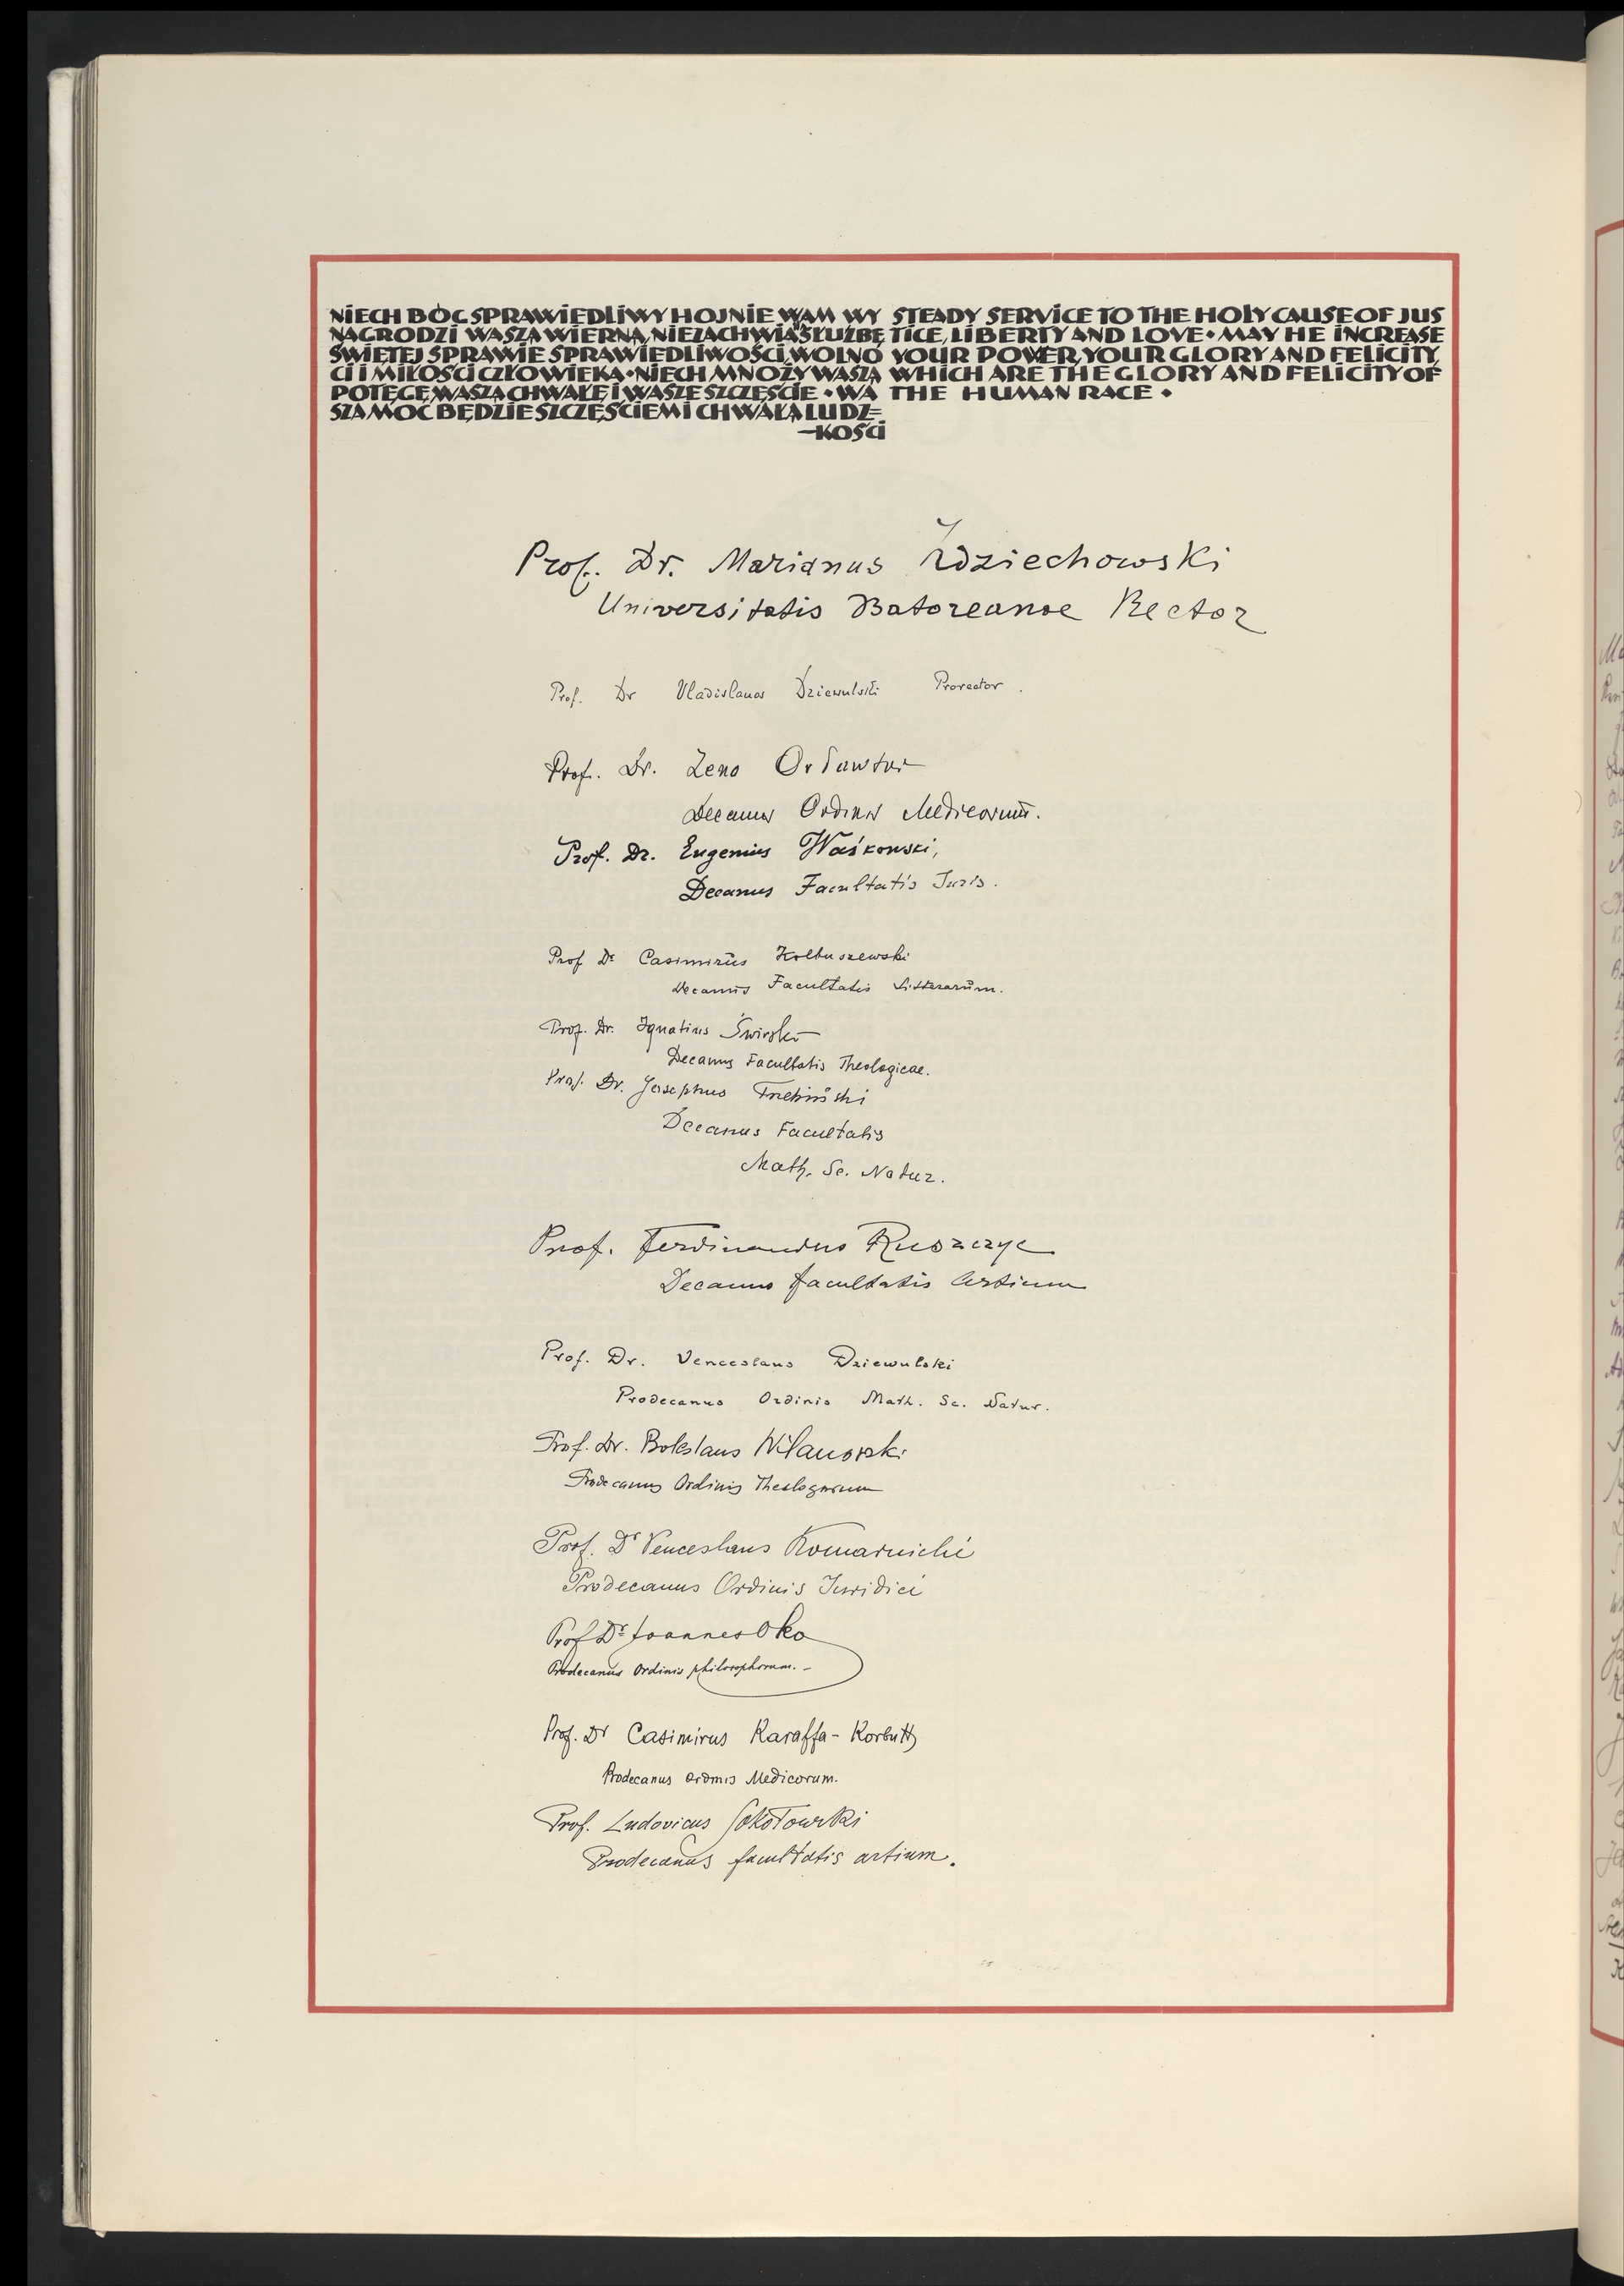 NIECH BÓG SPRAWIEDLIWY HOJNIE WAM WY
NAGRODZI WASZĄ WIERNĄ, NIEZACHWIĄNĄ SŁUŻBĘ
ŚWIĘTEJ SPRAWIE SPRAWIEDLIWOŚCI, WOLNO
ŚCI I MIŁOŚCI CZŁOWIEKA • NIECH MNOŻY WASZĄ
POTĘGĘ, WASZĄ CHWAŁĘ I WASZE SZCZĘŚCIE • WA
SZA MOC BĘDZIE SZCZĘŚCIEM I CHWAŁĄ LUDZ=
—KOŚCI
STEADY SERVICE TO THE HOLY CAUSE OF JUS
TICE, LIBERTY AND LOVE • MAY HE INCREASE
YOUR POWER, YOUR GLORY AND FELICITY,
WHICH ARE THE GLORY AND FELICITY OF
THE HUMAN RACE •
Prof. Dr. Marianus Zdziechowski
Universitatis Batoreanae Rector
Prof. Dr Vladislaus Dziewulski Prorector.
Prof. Dr. Zeno Orłowski
Decanus Ordinis Medicorum.
Prof. Dr. Eugenius Waśkowski,
Decanus Facultatis Juris.
Prof Dr Casimirus Kolbuszewski
Decanus Facultatis Litterarum.
Prof. Dr. Ignatius Świrski
Decanus Facultatis Theologicae.
Prof. Dr. Josephus Trzebiński
Decanus Facultatis
Math. Sc. Natur.
Prof. Ferdinandus Ruszczyc
Decanus facultatis Artium
Prof. Dr. Venceslaus Dziewulski
Prodecanus Ordinis Math. Sc. Natur.
Prof. Dr. Boleslaus Wilanowski
Prodecanus Ordinis Theologorum
Prof. Dr Venceslaus Komarnicki
Prodecanus Ordinis Juridici
Prof Dr Joannes Oko
Prodecanus Ordinis philosophorum. –
Prof. Dr Casimirus Karaffa-Korbutt
Prodecanus Ordinis Medicorum.
Prof. Ludovicus Sokołowski
Prodecanus facultatis artium.